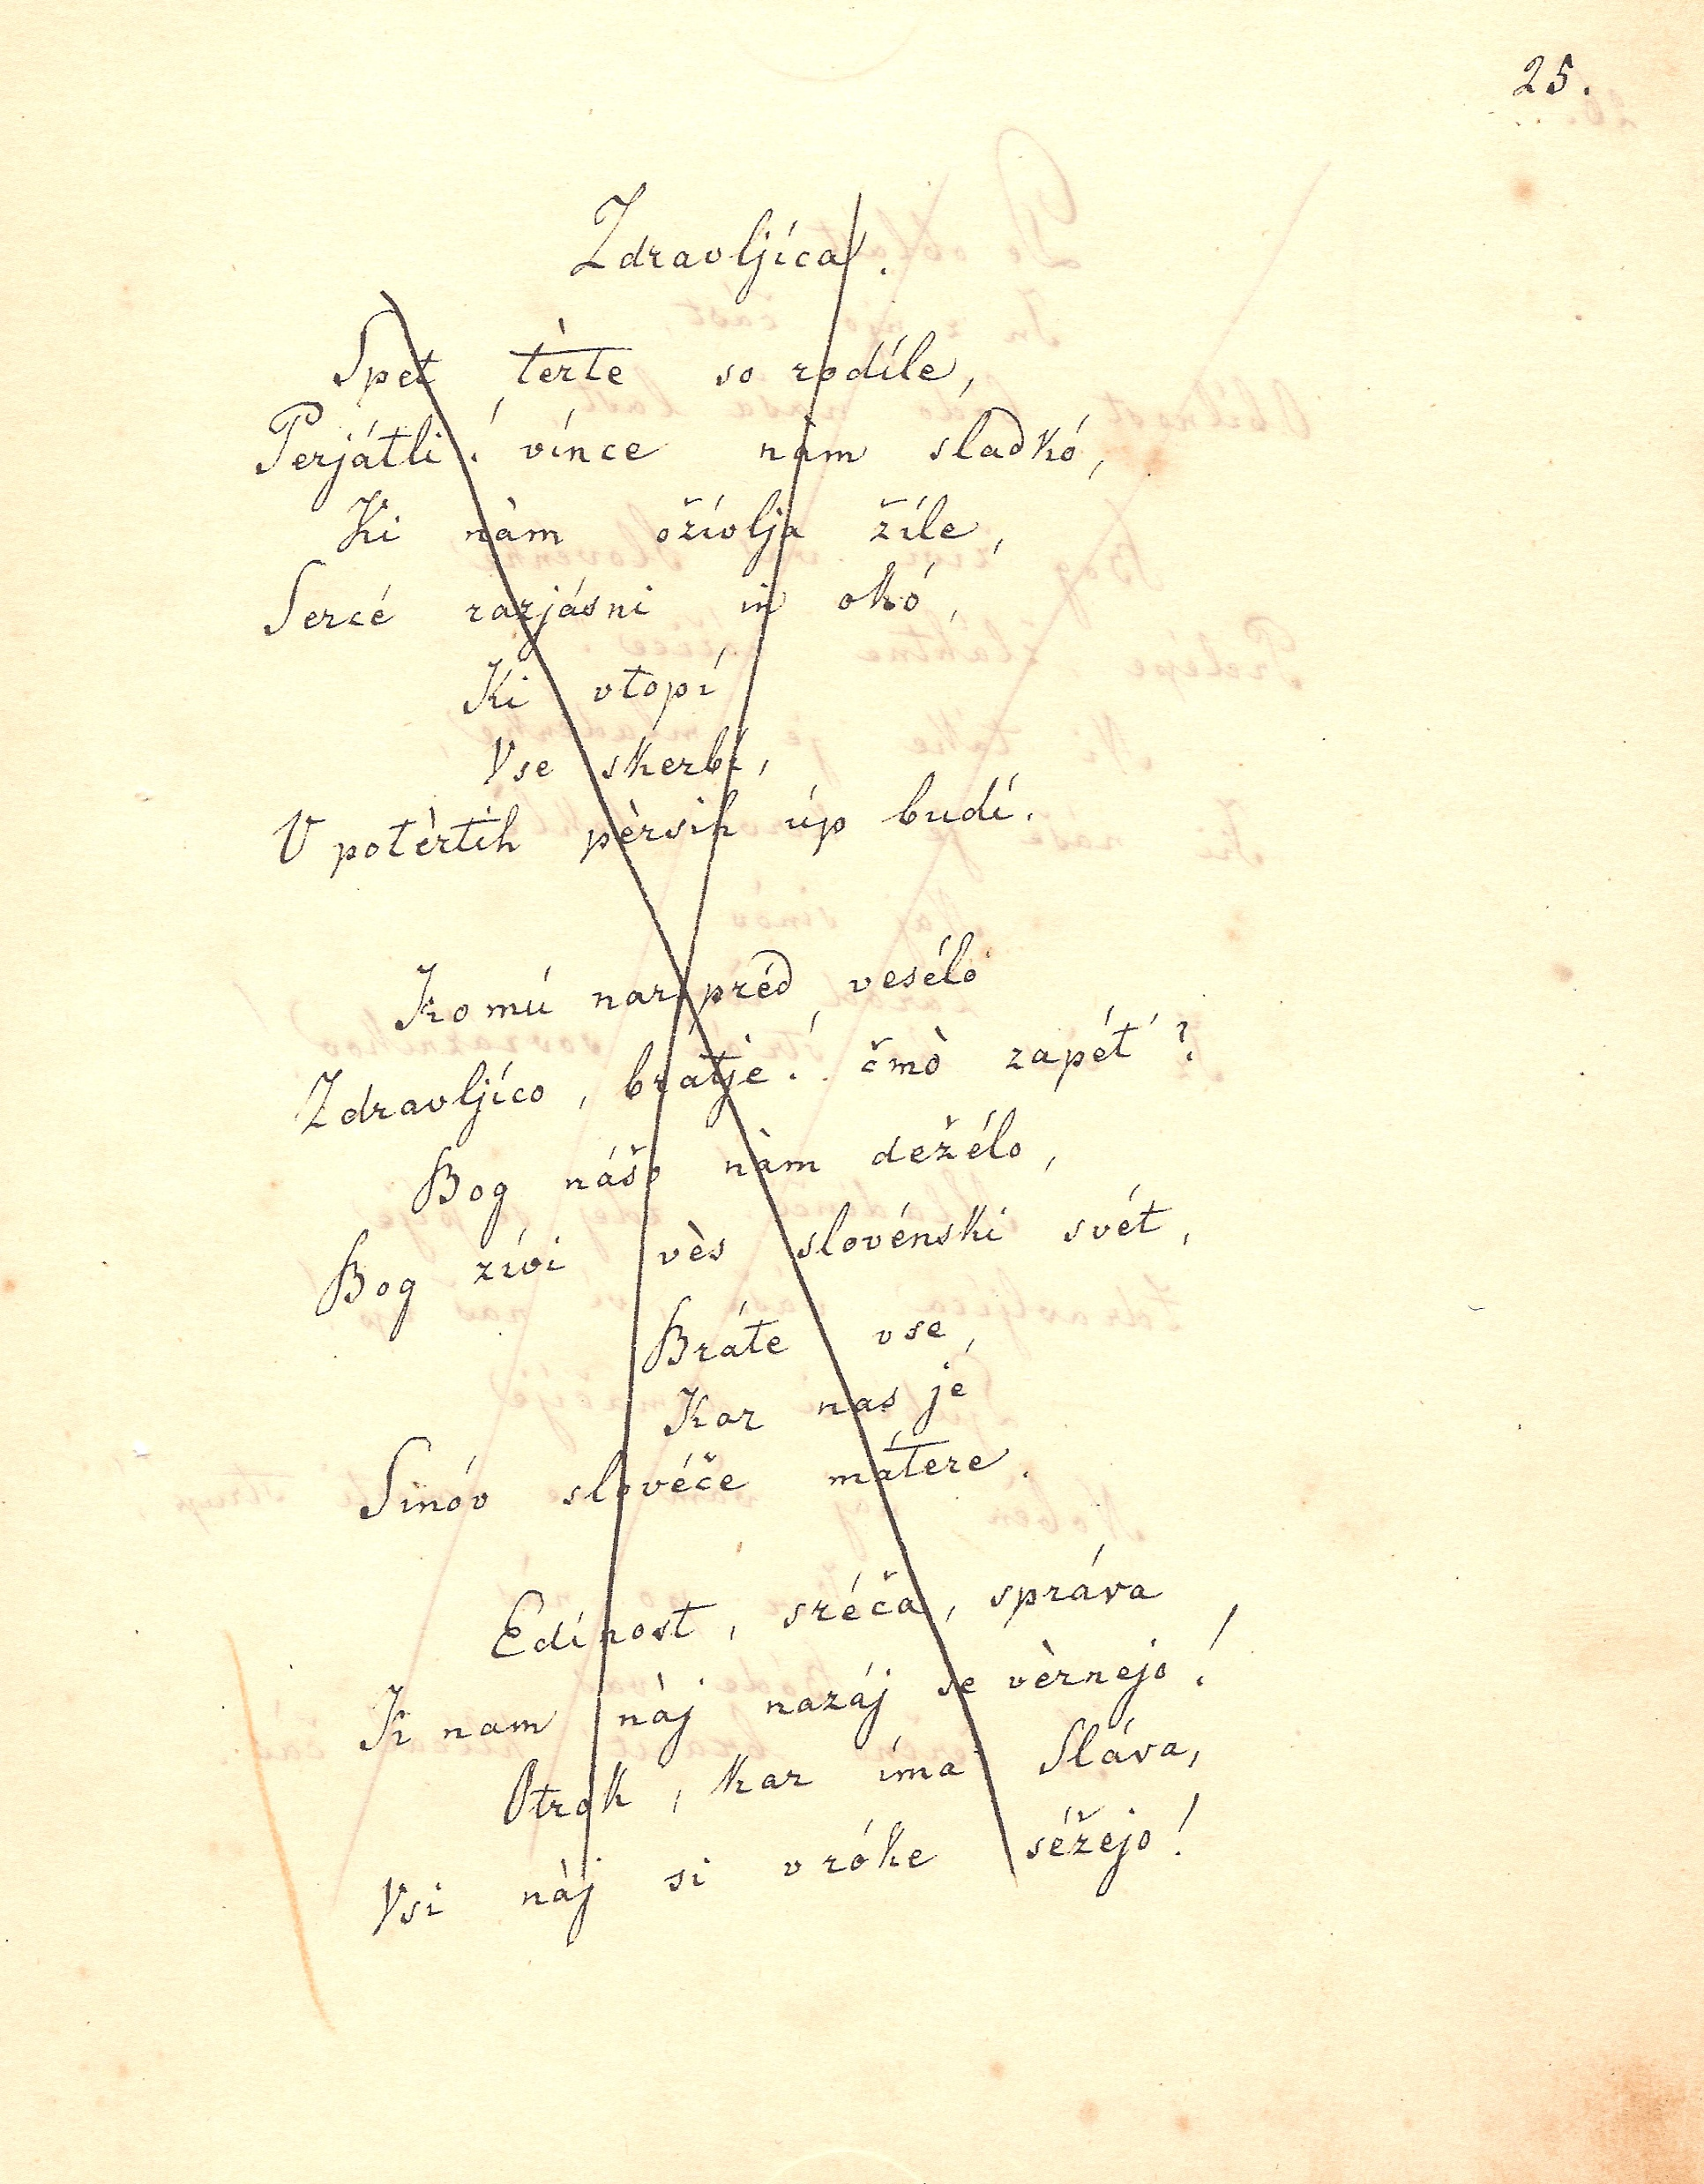 25.
Zdravljíca.
Spet tèrte so rodíle,
Perjátli! vínce nàm sladkó,
Ki nàm ožívlja žíle,
Sercé razjásni in okó,
Ki vtopí
Vse skerbí,
V potèrtih pèrsih úp budí.
Komú narpréd vesélo
Zdravljíco, bratje! čmò zapét'?
Bog nášo nàm dežélo,
Bog zívi vès slovénski svét,
Bráte vse,
Kar nas je
Sinóv slovéče mátere.
Edínost, sréča, správa
K nam nàj nazáj se vèrnejo!
Otrok, kar íma Sláva,
Vsi nàj si v róke séžejo!